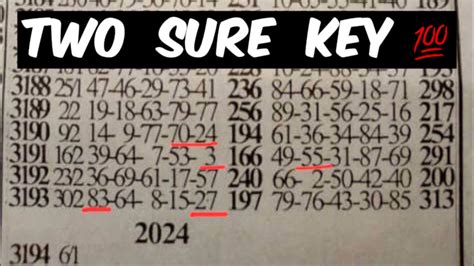 TWO SURE KEY 💯
3188 25/1 47-46-29-73-41 236 84-66-59-18-71 298
3189 22 19-18-63-79-77 256 89-31-56-25-16 217
3190 92 14- 9-77-70-24 194 61-36-34-84-39 254
3191 162 39-64- 7-53- 3 166 49-55-31-87-69 291
3192 232 36-69-61-17-57 240 66- 2-50-42-40 200
3193 302 83-64- 8-15-27 197 79-76-43-30-85 313
2024
3194 6/1